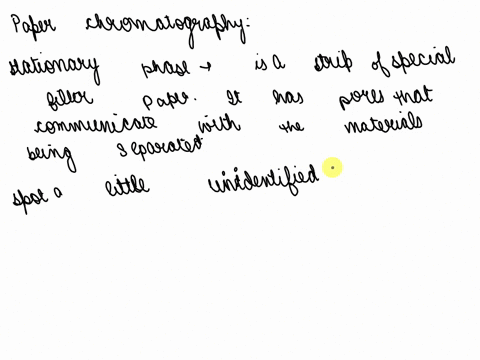 Paper chromatography:
stationary phase → is a strip of special
filter paper. It has pores that
communicate with the materials
being separated
spot a little unidentified